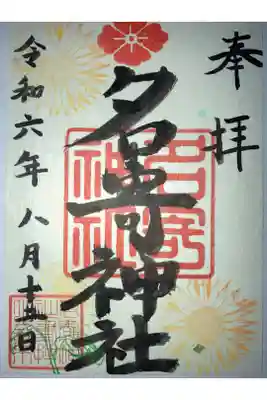 奉拝
名寄神社
名寄
神社
令和六年八月十五日